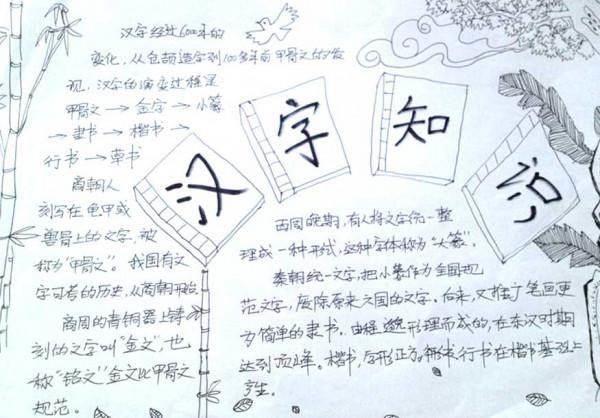 汉字知识
汉字经过6000年的
变化,从仓颉造字到100多年前甲骨文的发
现,汉字的演变过程是
甲骨文→金字→小篆
→隶书→楷书→
行书→草书
商朝人
刻写在龟甲或
兽骨上的文字,被
称为“甲骨文”。我国有文
字可考的历史,从商朝开始
商周的青铜器上铸
刻的文字叫“金文”,也
称“铭文”金文比甲骨文
规范。
西周晚期,有人将文字统一整
理成一种形式,这种字体称为“大篆”。
秦朝统一文字,把小篆作为全国规
范文字,废除原来六国的文字,后来,又推了笔画更
为简单的隶书。由程邈形理而成的,在东汉时期
达到顶峰。楷书,字形正方,行书在楷书基础上
产生。